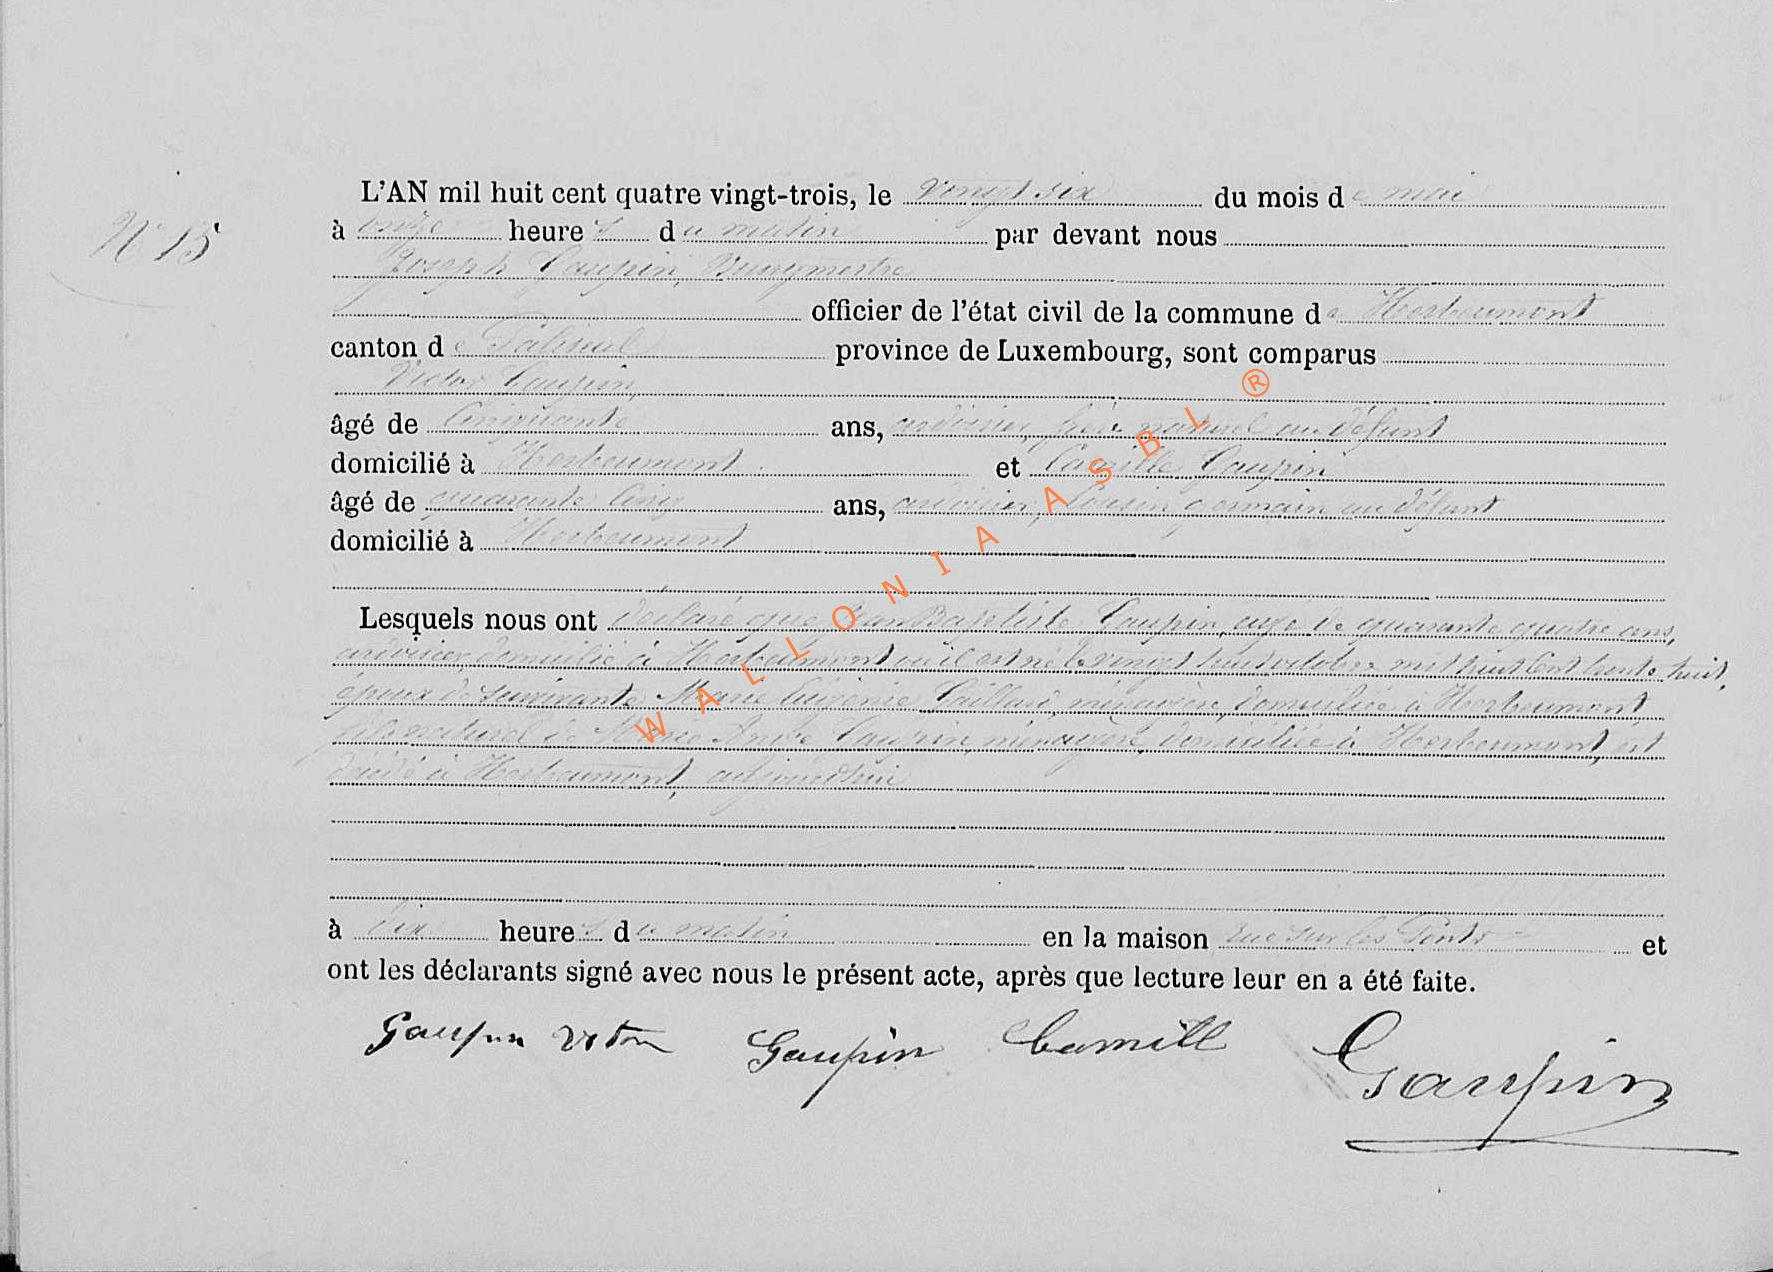 L'AN mil huit cent quatre vingt-trois, le vingt six du mois de mai
N° 15
à onze heures du matin par devant nous
Joseph Gaupin, Bourgmestre
officier de l'état civil de la commune de Herbeumont
canton de Paliseul province de Luxembourg, sont comparus
Victor Gaupin,
âgé de Cinquante ans, ardoisier, frère naturel au défunt
domicilié à Herbeumont et Camille Gaupin
âgé de quarante Cinq ans, ardoisier, Cousin germain au défunt
domicilié à Herbeumont
Lesquels nous ont déclaré que Jean Baptiste Gaupin, âgé de quarante quatre ans,
ardoisier, domicilié à Herbeumont où il est né le vingt huit octobre mil huit Cent trente huit,
époux de survivante Marie Eugénie Gaillard, ménagère, domiciliée à Herbeumont
fils naturel de Marie Anne Gaupin, ménagère, domiciliée à Herbeumont, est
décédé à Herbeumont, aujourd'hui
à dix heures du matin en la maison rue sur les Ponts et
ont les déclarants signé avec nous le présent acte, après que lecture leur en a été faite.
Gaupin Victor Gaupin Camille Gaupin
WALLONIA ASBL ®